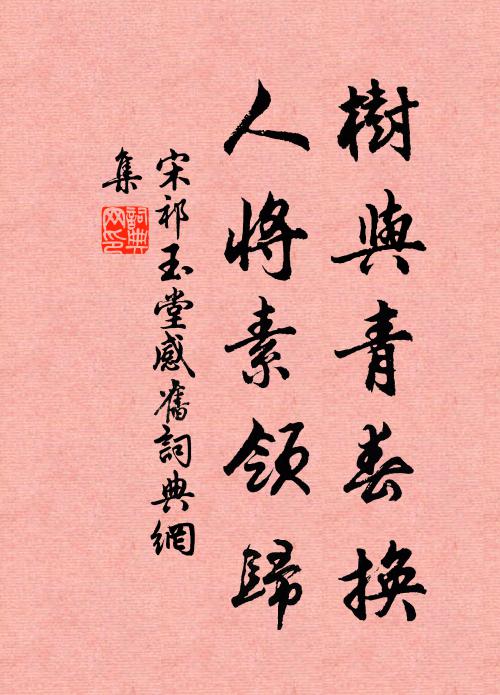 樹與青春換
人將素領歸
宋祁玉堂感舊詞典網
集
詞典網印